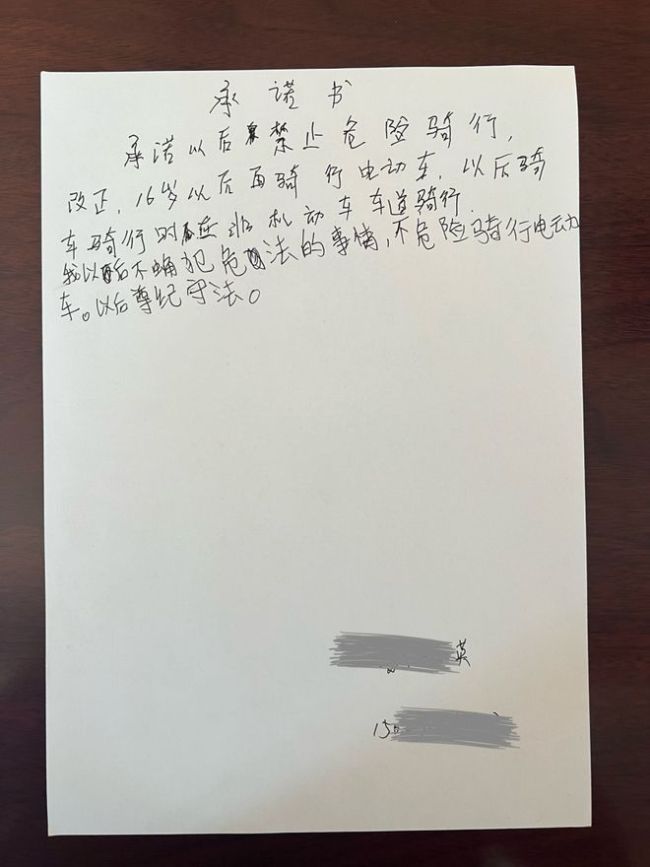 承诺书
承诺以后禁止危险骑行，
改正，16岁以后再骑行电动车，以后骑
车骑行时在非机动车车道骑行.
我以后不触犯危法的事情，不危险骑行电动
车。以后尊纪守法。
英
15